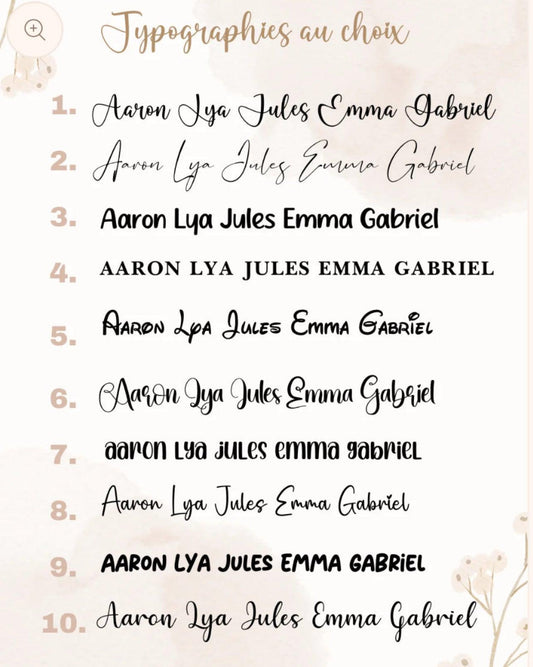 Typographies au choix
1. Aaron Lya Jules Emma Gabriel
2. Aaron Lya Jules Emma Gabriel
3. Aaron Lya Jules Emma Gabriel
4. AARON LYA JULES EMMA GABRIEL
5. Aaron Lya Jules Emma Gabriel
6. Aaron Lya Jules Emma Gabriel
7. aaron lya jules emma gabriel
8. Aaron Lya Jules Emma Gabriel
9. AARON LYA JULES EMMA GABRiEL
10. Aaron Lya Jules Emma Gabriel